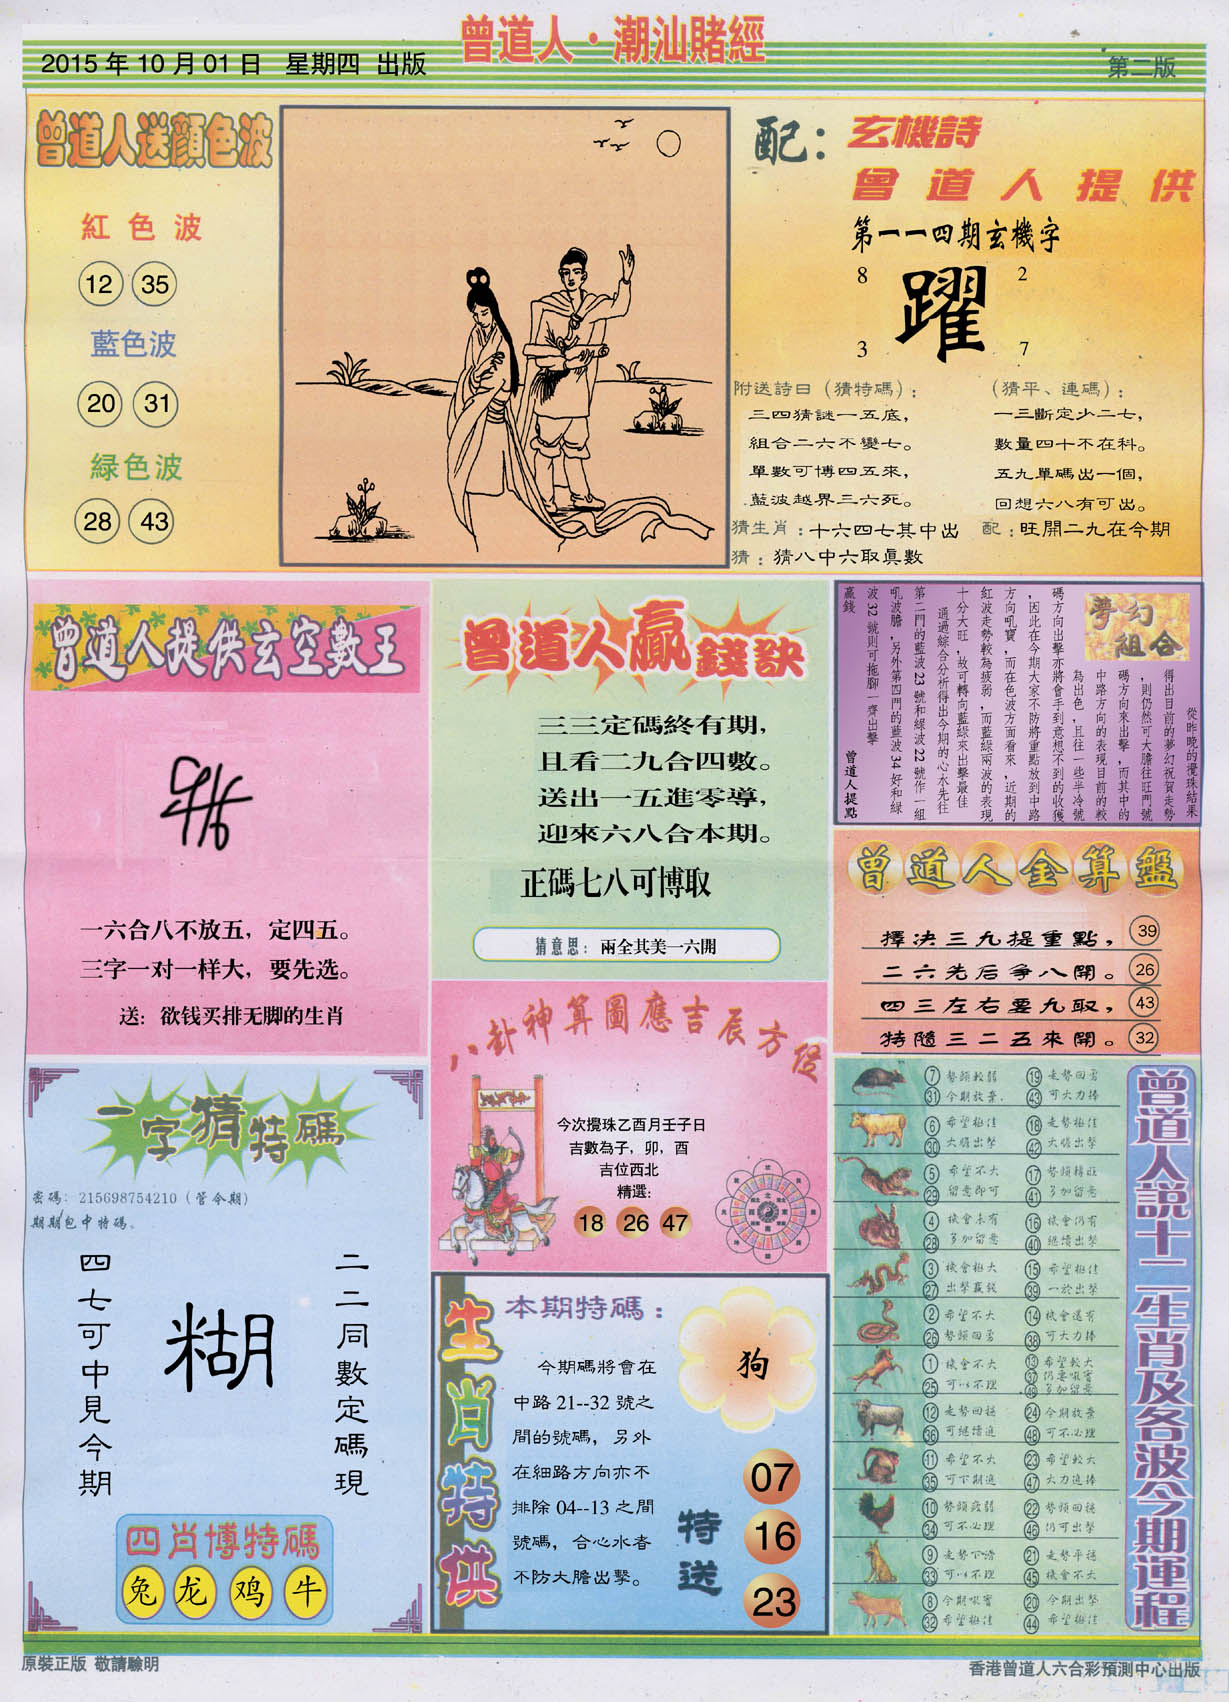 曾道人·潮汕賭經
2015年10月01日 星期四 出版
第二版
曾道人送顏色波
紅色波
12 35
藍色波
20 31
緑色波
28 43
配：玄機詩
曾道人提供
第一一四期玄機字
8 2
躍
3 7
附送詩曰（猜特碼）：
三四猜謎一五底，
組合二六不變七。
單數可博四五來，
藍波越界三六死。
（猜平、連碼）：
一三斷定少二七，
數量四十不在科。
五九單碼出一個，
回想六八有可出。
猜生肖：十六四七其中出
配：旺開二九在今期
猜：猜八中六取眞數
曾道人提供玄空數王
一六合八不放五，定四五。
三字一对一样大，要先选。
送：欲钱买排无脚的生肖
曾道人贏錢訣
三三定碼終有期，
且看二九合四數。
送出一五進零導，
迎來六八合本期。
正碼七八可博取
猜意思：兩全其美一六開
夢幻組合
從昨晚的攪珠結果
得出目前的夢幻祝賀走勢
，則仍然可大膽往旺門號
碼方向來出擊，而其中的
中路方向的表現目前的較
為出色，且往一些半冷號
碼方向出擊亦將會手到意想不到的收獲
，因此在今期大家不防將重點放到中路
方向吼寶，而在色波方面看來，近期的
紅波走勢較為疲弱，而藍綠兩波的表現
十分大旺，故可轉向藍綠來出擊最佳
通過綜合分析得出今期的心水先往
第二門的藍波23號和緑波22號作一組
吼波膽，另外第四門的藍波34好和綠
波32號則可拖腳一齊出擊
贏錢
曾道人提點
曾道人金算盤
擇决三九提重點， 39
二六先后爭八開。 26
四三左右要九取， 43
特隨三二五來開。 32
八卦神算圖應吉辰方位
今次攪珠乙酉月壬子日
吉數為子，卯，酉
吉位西北
精選：
18 26 47
一字猜特碼
密碼：215698754210（管今期）
期期包中特碼。
二二同數定碼現
糊
四七可中見今期
四肖博特碼
兔 龙 鸡 牛
生肖特供
本期特碼：
狗
今期碼將會在
中路21--32號之
間的號碼，另外
在細路方向亦不
排除04--13之間
號碼，合心水者
不防大膽出擊。
特送
07
16
23
曾道人説十二生肖及各波今期運程
7 勢頭較弱 19 走勢回勇
31 今期放棄 43 可大力捧
6 希望極佳 18 走勢極佳
30 大膽出擊 42 大膽出擊
5 希望不大 17 勢頭轉旺
29 留意即可 41 多加留意
4 機會未有 16 機會仍有
28 多加留意 40 繼續出擊
3 機會極大 15 希望極佳
27 出擊贏錢 39 一於出擊
2 希望不大 14 機會還有
26 勢頭回勇 38 可大力捧
1 機會不大 13 希望較大
25 可以不理 37 仍要吼實
49 多加留意
12 走勢回穩 24 今期放棄
36 可繼續追 48 可不必理
11 希望不大 23 希望較大
35 可下期追 47 大力追捧
10 勢頭疲弱 22 勢頭回穩
34 可不必理 46 仍可出擊
9 走勢下滑 21 走勢平穩
33 可以不理 45 機會不大
8 今期吼實 20 今期出擊
32 希望極佳 44 希望極佳
原裝正版 敬請驗明
香港曾道人六合彩預測中心出版